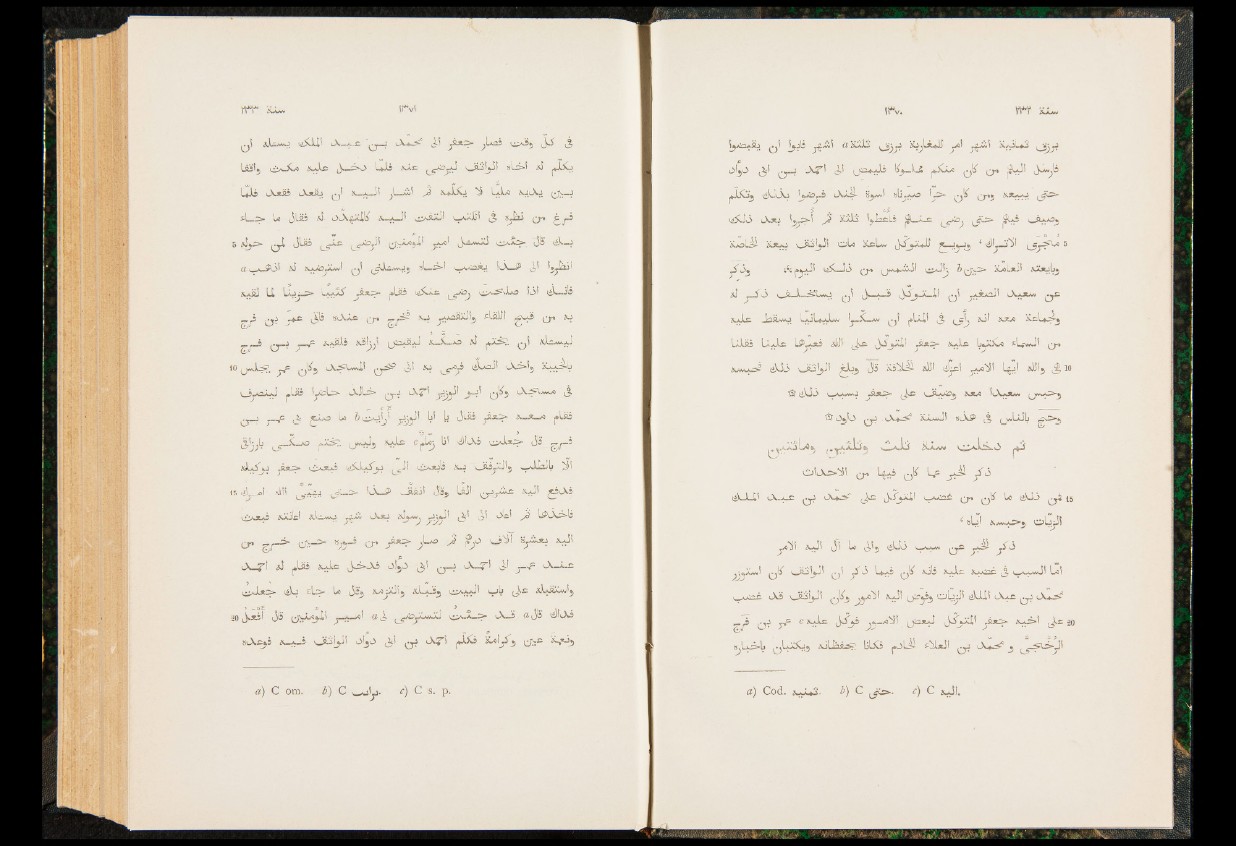 سنة ٢٣٢ ١٣٧٠
برزق ثمانية اشهر امر للمغاربة برزق ثلثة a اشهر فابوا ان يقبضوا
فارسل اليهم من كان منكم مملوكا فليمض الى احمد بن ابى دواد
حتى يبيعه ومن كان حرّا صيّرناه اسوة الجند فرضوا بذلك وتكلّم
وصيف فيهم حتى رضى عنهم فأُعطوا ثلثة ثم أجروا بعد ذلك
5 مُجْرَى الاتراك، وبويع للمتوكل ساعة مات الواثق بيعة الخاصّة
وبايعته العامّة حين b زالت الشمس من ذلك اليوم، وذكر
عن سعيد الصغير ان المتوكّل قبل ان يستخلف ذكر له
ولجماعة معه انه رأى فى المنام ان سكّرا سليمانيّا يسقط عليه
من السماء مكتوبا عليه جعفر المتوكل على الله فعبّرها علينا فقلنا
10 هى والله ايّها الامير اعزّك الله الخلافة قال وبلغ الواثق ذلك فحبسه
وحبس سعيدا معه وضيّق على جعفر بسبب ذلك
وحجّ بالناس فى هذه السنة محمّد بن داود
ثم دخلت سنة ثلث وثلثين ومائتين
ذكر الخبر عما كان فيها من الاحداث
15 فمن ذلك ما كان من غضب المتوكل على محمّد بن عبد الملك
الزيّات وحبسه ايّاه،
ذكر الخبر عن سبب ذلك والى ما آل اليه الامر
امّا السبب فى غضبه عليه فانه كان فيما ذكر ان الواثق كان استوزر
محمّد بن عبد الملك الزيّات وفوّض اليه الامور وكان الواثق قد غضب
20 على اخيه جعفر المتوكل لبعض الامور فوكّل عليه c عمر بن فرج
الرُّخَّجىّ و محمّد بن العلاء الخادم فكانا يحفظانه ويكتبان باخباره
a) Cod. ثمنيه. b) C حتى. c) C اليه.
١٣٧١ سنة ٢٣٣
فى كلّ وقت فصار جعفر الى محمّد بن عبد الملك يسئله ان
يكلّم له اخاه الواثق ليرضى عنه فلمّا دخل عليه مكث واقفا
بين يديه مليّا لا يكلّمه ثم اشار اليه ان يقعد فقعد فلمّا
فرغ من نظره فى الكتب التفت اليه كالمتهدّد له فقال ما جاء
5 بك قال جئت لتسئل امير المؤمنين الرضى عنّى فقال لمن حوله
انظروا الى هذا يغضب اخاه ويسئلنى ان استرضيه له اذهب a
فانّك اذا صلحت رضى عنك فقام جعفر كئيبا حزينا لما لقيه
به من قبح اللقاء والتقصير به فخرج من عنده فاتى عمر بن فرج
ليسئله ان يختم له صكّه ليقبض ارزاقه فلقيه عمر بن فرج
10 بالخيبة واخذ الصك فرمى به الى صحن المسجد وكان عمر يجلس
فى مسجد وكان ابو الوزير احمد بن خالد حاضرا فقام لينصرف
فقام معه جعفر فقال يا ابا الوزير أرأيت b ما صنع بى عمر بن
فرج قال جعلت فداك انا زمّام c عليه وليس يختم صكّى بارزاقى
الّا بالطلب والترفّق به فابعث الىّ بوكيلك فبعث جعفر بوكيله
15 فدفع اليه عشرين الفا وقال انفق هذا حتى يهيّئ الله امرك
فاخذها ثم اعاد الى ابى الوزير رسوله بعد شهر يسئله اعانته فبعث
اليه بعشرة آلاف درهم ثم صار جعفر من فوره حين خرج من
عند عمر الى احمد بن ابى دواد فدخل عليه فقام له احمد
واستقبله على باب البيت وقبّله والتزمه وقال ما جاء بك جعلت
20 فداك قال a قد جئت لتسترضى لى a امير المؤمنين قال أفعل
ونعمة عين وكرامة فكلّم احمد بن ابى دواد الواثق فيه فوعده
a) C om. b) C برايت. c) C s. p.